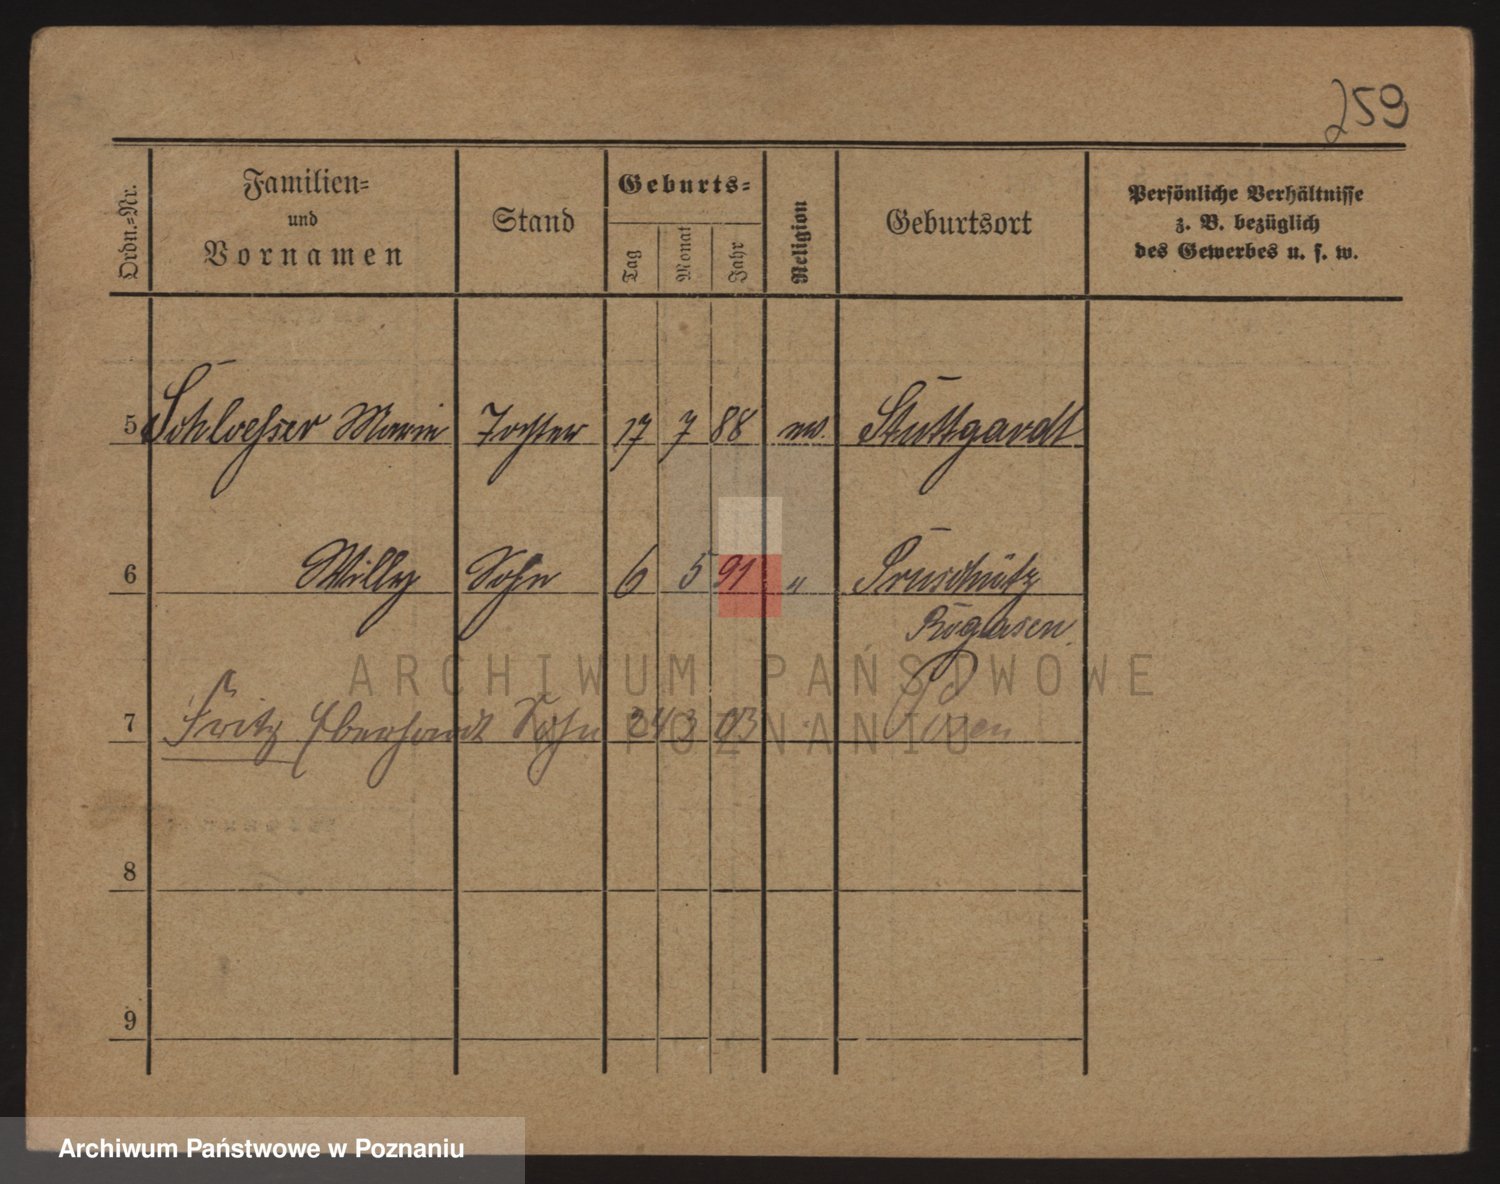 259
Ordn.=Nr.
Familien=
und
Vornamen
Stand
Geburts=
Tag
Monat
Jahr
Religion
Geburtsort
Persönliche Verhältnisse
z. B. bezüglich
des Gewerbes u. s. w.
5 Schloesser Marie Tochter 17 7 88 ev. Stuttgardt
6 Willy Sohn 6 5 91 "
Rogasen
7 Fritz Eberhardt Sohn 24 3 03 Posen
8
9
ARCHIWUM PAŃSTWOWE
W POZNANIU
Archiwum Państwowe w Poznaniu